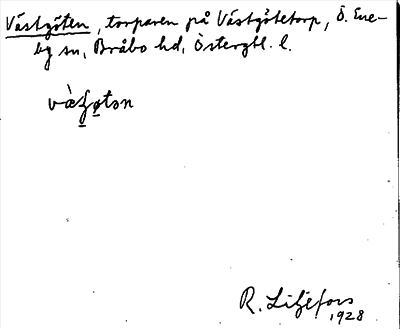 Västgöten, torparen på Västgötetorp, Ö. Ene-
by sn, Bråbo hd, Östergtl. l.
R. Liljefors
1928